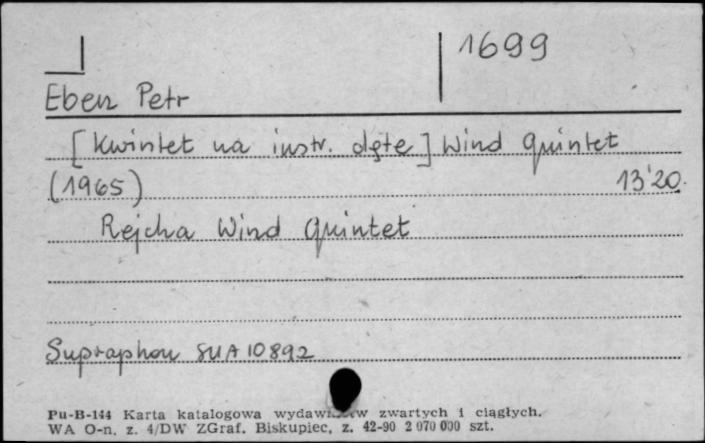 1699
Eben Petr
[Kwintet na instr. dęte] Wind Quintet
(1965) 13'20
Rejcha Wind Quintet
Supraphon SUA 10892
Pu-B-144 Karta katalogowa zwartych i ciągłych.
WA O-n. z. 4/DW ZGraf. Biskupiec, z. 42-90 2 070 000 szt.